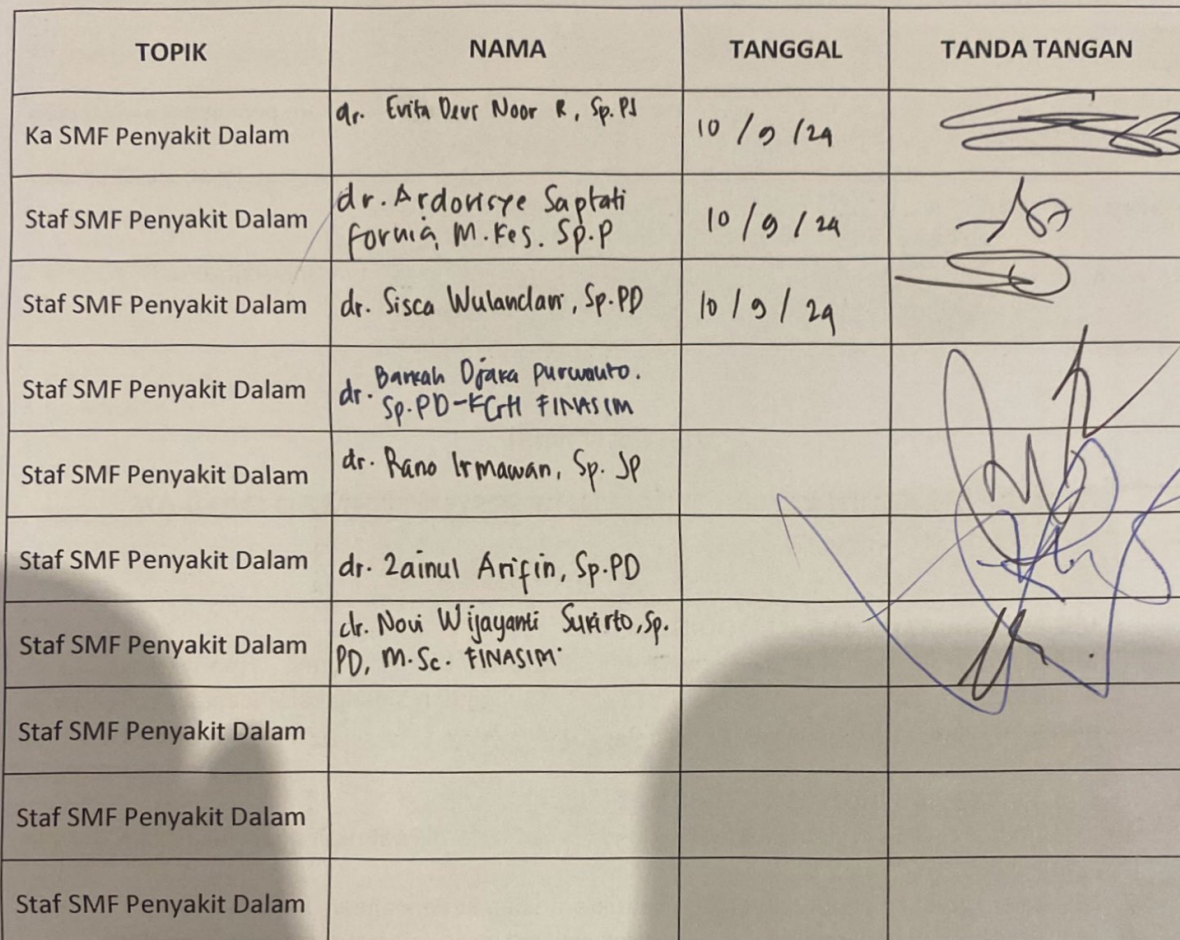 TOPIK NAMA TANGGAL TANDA TANGAN
Ka SMF Penyakit Dalam dr. Evita Devi Noor R, Sp.PD 10 / 9 / 24
Staf SMF Penyakit Dalam dr. Saptati
M.Kes. Sp.P 10 / 9 / 24
Staf SMF Penyakit Dalam dr. Sisca Wulandari, Sp.PD 10 / 9 / 24
Staf SMF Penyakit Dalam dr. Barkah Djaka Purwanto.
Sp.PD-KGH FINASIM
Staf SMF Penyakit Dalam dr. Rano Irmawan, Sp. JP
Staf SMF Penyakit Dalam dr. Zainul Arifin, Sp.PD
Staf SMF Penyakit Dalam dr. Novi Wijayanti Sukirto, Sp.
PD, M.Sc. FINASIM
Staf SMF Penyakit Dalam
Staf SMF Penyakit Dalam
Staf SMF Penyakit Dalam